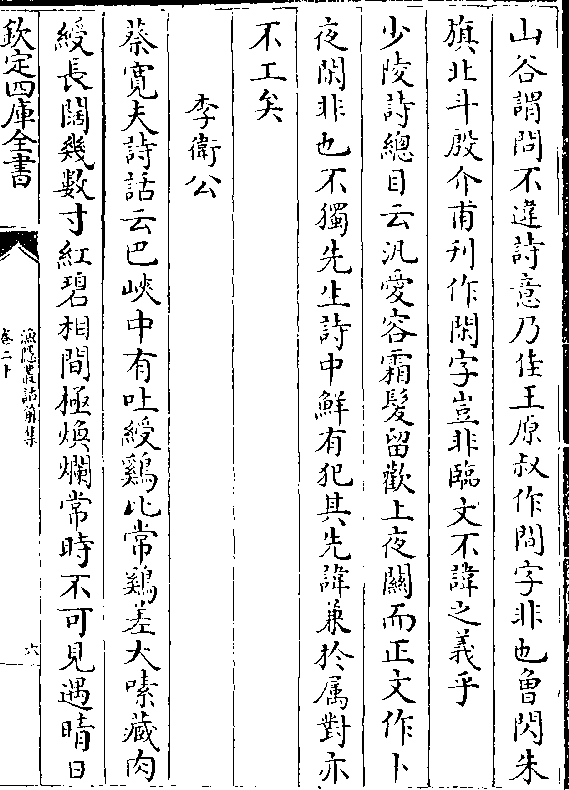 山谷謂問不違詩意乃佳王原叔作間字非也曾閃朱
旗北斗殷介甫刊作閑字豈非臨文不諱之義乎
少陵詩總目云汎愛容霜髮留歡上夜關而正文作卜
夜閑非也不獨先生詩中鮮有犯其先諱兼於属對亦
不工矣
李衛公
蔡寛夫詩話云巴峽中有吐綬鷄比常鷄差大嗉藏肉
綬長闊幾數寸紅碧相間極煥爛常時不可見遇晴日
欽定四庫全書
漁隠叢話前集
卷二十
六